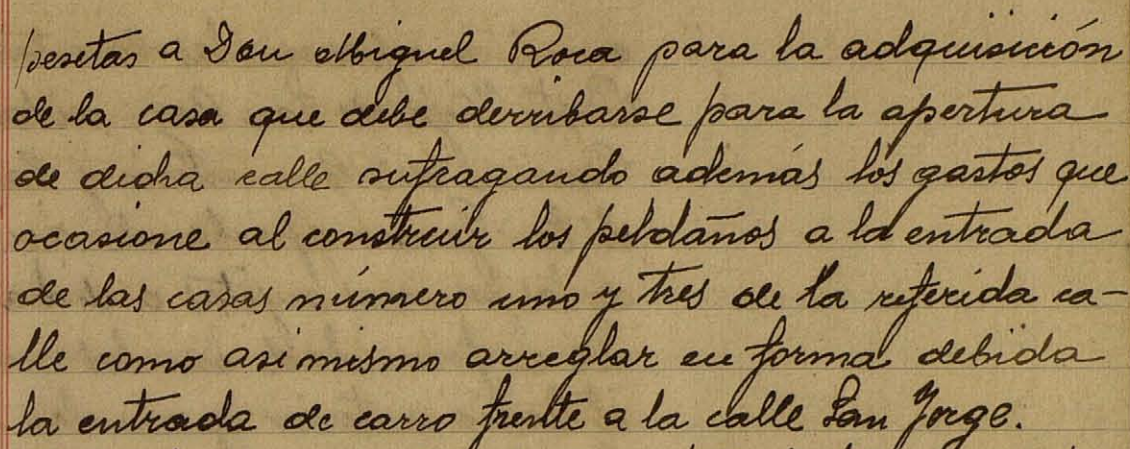 pesetas a Don Miguel Roca para la adquisición
de la casa que debe derribarse para la apertura
de dicha calle sufragando además los gastos que
ocasione al construir los peldaños a la entrada
de las casas número uno y tres de la referida ca-
lle como asi mismo arreglar en forma debida
la entrada de carro frente a la calle San Jorge.